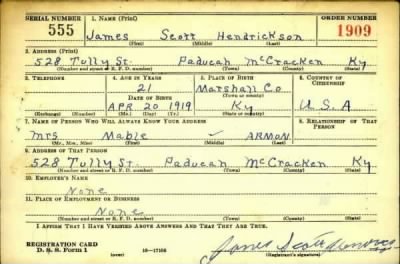 SERIAL NUMBER 1. NAME (Print) ORDER NUMBER
555 James Scott Hendrickson 1909
(First) (Middle) (Last)
2. ADDRESS (Print)
528 Tully St. Paducah McCracken Ky
(Number and street or R. F. D. number) (Town) (County) (State)
3. TELEPHONE 4. AGE IN YEARS 5. PLACE OF BIRTH 6. COUNTRY OF CITIZENSHIP
21 Marshall Co
DATE OF BIRTH (Town or county)
APR 20 1919 Ky U S A
(Exchange) (Number) (Mo.) (Day) (Yr.) (State or country)
7. NAME OF PERSON WHO WILL ALWAYS KNOW YOUR ADDRESS 8. RELATIONSHIP OF THAT PERSON
Mrs Mable ARMON
(Mr., Mrs., Miss) (First) (Middle) (Last)
9. ADDRESS OF THAT PERSON
528 Tully St. Paducah McCracken Ky
(Number and street or R. F. D. number) (Town) (County) (State)
10. EMPLOYER'S NAME
None
11. PLACE OF EMPLOYMENT OR BUSINESS
None
(Number and street or R. F. D. number) (Town) (County) (State)
I AFFIRM THAT I HAVE VERIFIED ABOVE ANSWERS AND THAT THEY ARE TRUE.
REGISTRATION CARD
D. S. S. Form 1 16-17105 James Scott
(Registrant's signature)